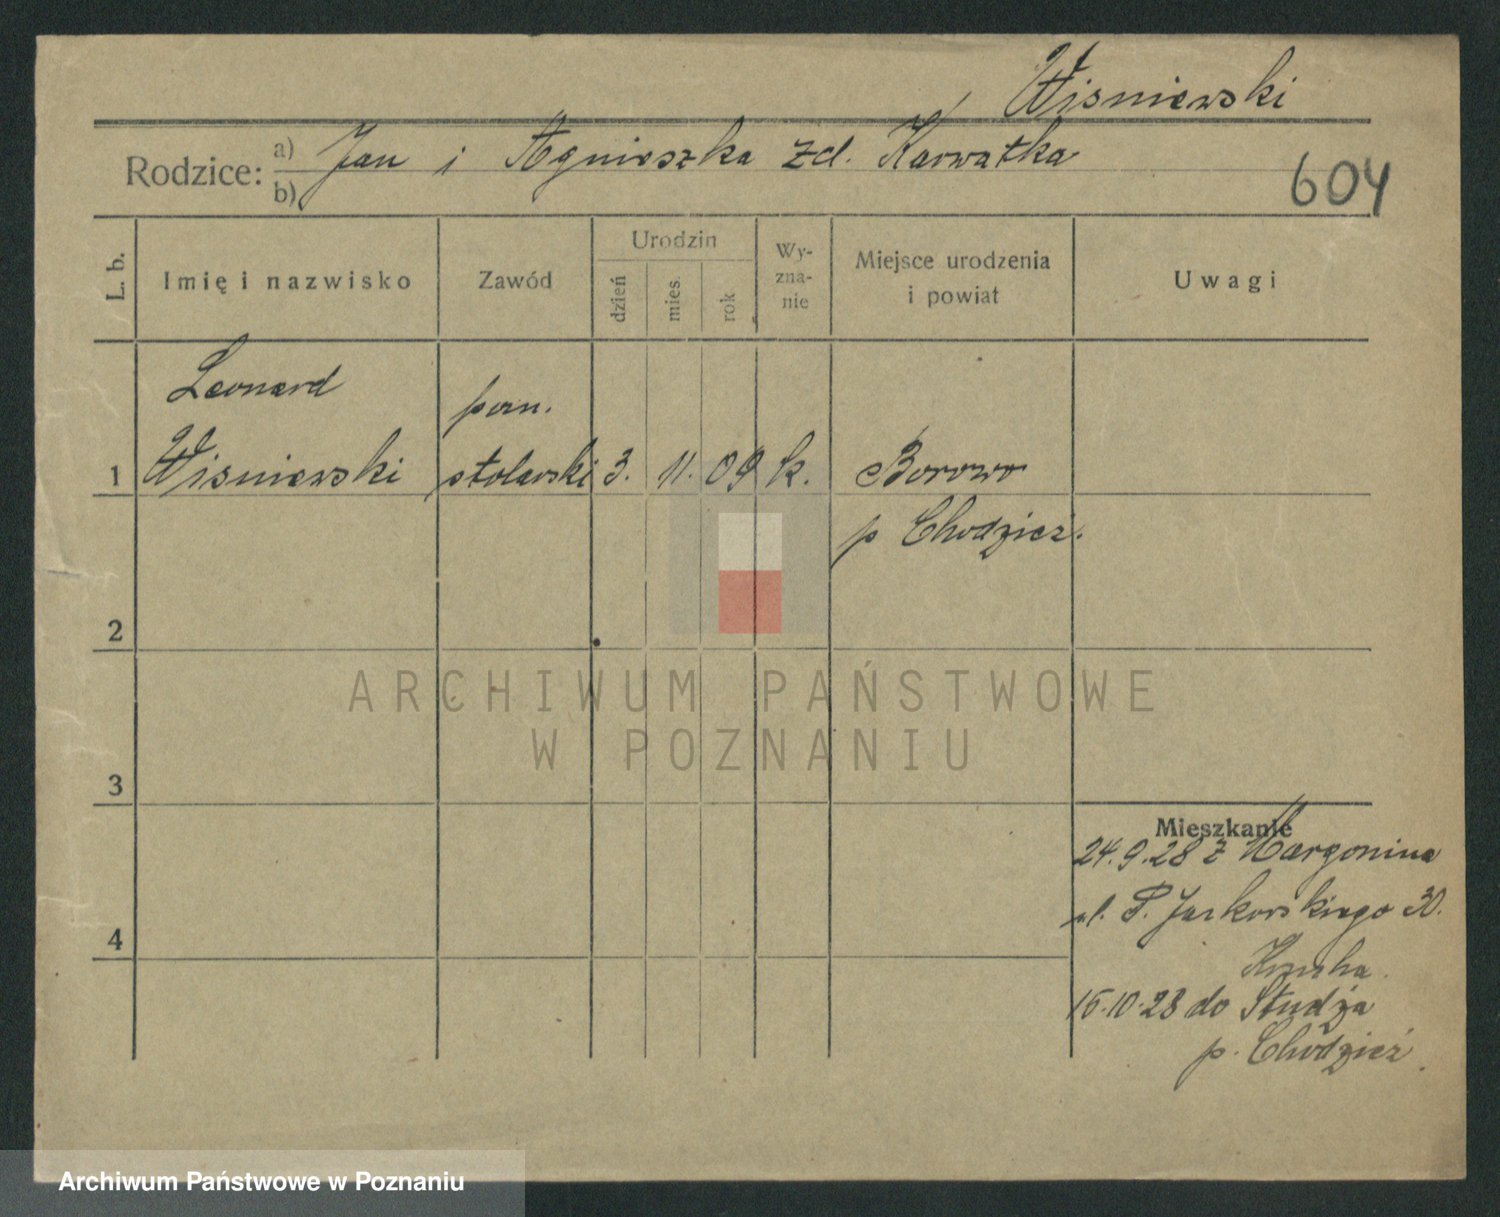 Wisniewski
Rodzice: a) Jan i Agnieszka zd. Karwatka
b)
604
L. b.
Imię i nazwisko
Zawód
Urodzin
dzień
mies.
rok
Wy-
zna-
nie
Miejsce urodzenia
i powiat
Uwagi
Leonard
pom.
1 Wisniewski stolarski 3. 11. 09 k. Borowo
p Chodzież.
2
ARCHIWUM PAŃSTWOWE
W POZNANIU
3
Mieszkanie
24.9.28 z Margonina
ul. P. 30.
4
15.10.28 do
p. Chodzież
Archiwum Państwowe w Poznaniu